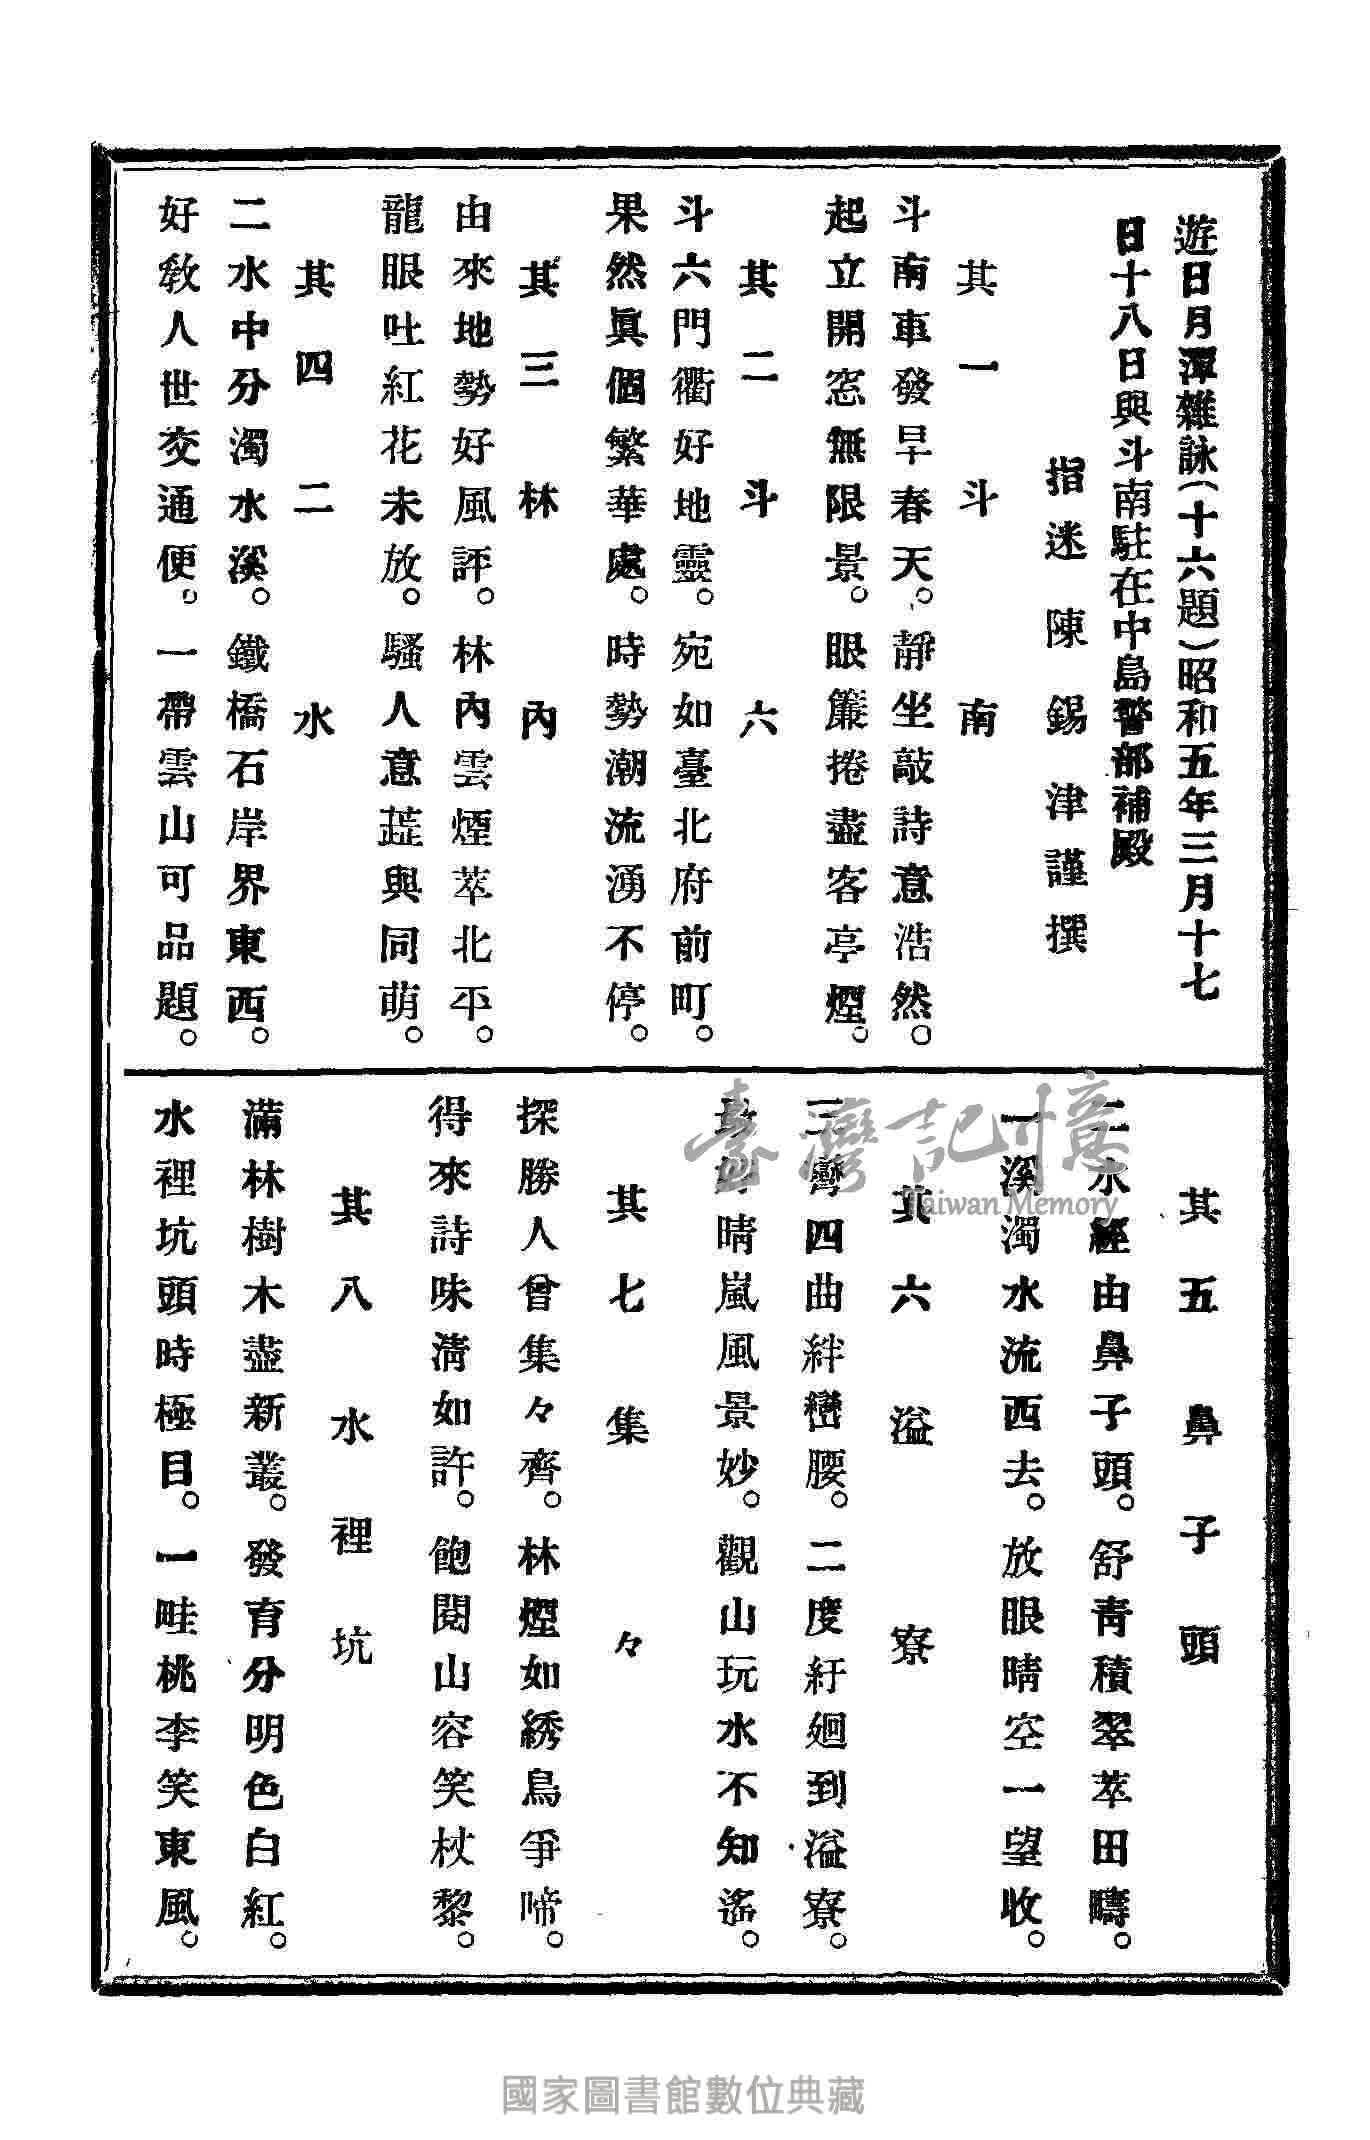 遊日月潭雜詠(十六題)昭和五年三月十七
日十八日與斗南駐在中島警部補殿
指迷　陳　錫　津謹撰
其一　斗　南
斗南車發早春天。靜坐敲詩意浩然。
起立開窓無限景。眼簾捲盡客亭煙。
其二　斗　六
斗六門衢好地靈。宛如臺北府前町。
果然眞個繁華處。時勢潮流湧不停。
其三　林　內
由來地勢好風評。林內雲煙萃北平。
龍眼吐紅花未放。騷人意蕋與同萌。
其四　二　水
二水中分濁水溪。鐵橋石岸界東西。
好敎人世交通便。一帶雲山可品題。
其五　鼻子頭
二水經由鼻子頭。舒靑積翠萃田疇。
一溪濁水流西去。放眼晴空一望收。
其六　溢　寮
三灣四曲絆巒腰。二度紆廻到溢寮。
最好晴嵐風景妙。觀山玩水不知遙。
其七　集　々
探勝人曾集々齊。林煙如綉鳥爭啼。
得來詩味淸如許。飽閱山容笑杖黎。
其八　水裡坑
滿林樹木盡新叢。發育分明色白紅。
水裡坑頭時極目。一畦桃李笑東風。
臺灣記憶
Taiwan Memory
國家圖書館數位典藏